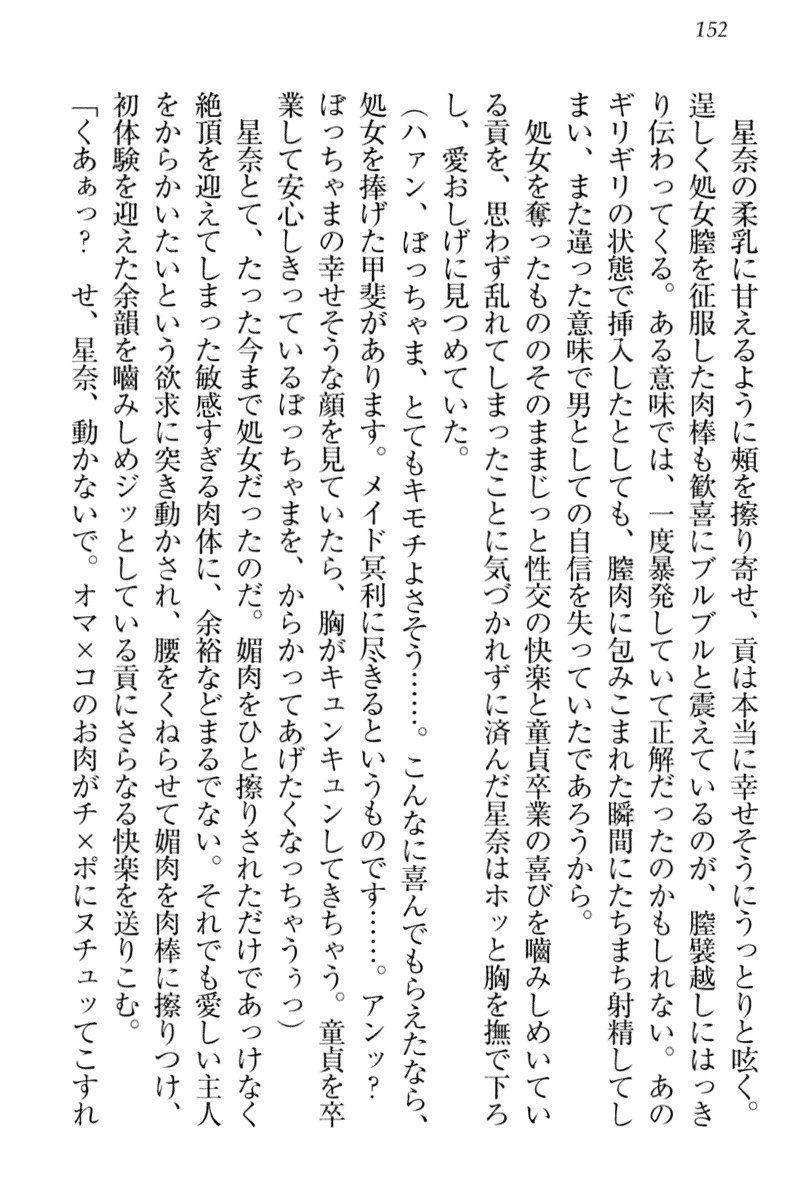 152
星奈の柔乳に甘えるように頰を擦り寄せ、貢は本当に幸せそうにうっとりと呟く。
逞しく処女膣を征服した肉棒も歓喜にブルブルと震えているのが、膣襞越しにはっき
り伝わってくる。ある意味では、一度暴発していて正解だったのかもしれない。あの
ギリギリの状態で挿入したとしても、膣肉に包みこまれた瞬間にたちまち射精してし
まい、また違った意味で男としての自信を失っていたであろうから。
処女を奪ったもののそのままじっと性交の快楽と童貞卒業の喜びを嚙みしめいてい
る貢を、思わず乱れてしまったことに気づかれずに済んだ星奈はホッと胸を撫で下ろ
し、愛おしげに見つめていた。
（ハァン、ぼっちゃま、とてもキモチよさそう……。こんなに喜んでもらえたなら、
処女を捧げた甲斐があります。メイド冥利に尽きるというものです……。アンッ？
ぼっちゃまの幸せそうな顔を見ていたら、胸がキュンキュンしてきちゃう。童貞を卒
業して安心しきっているぼっちゃまを、からかってあげたくなっちゃうぅっ）
星奈とて、たった今まで処女だったのだ。媚肉をひと擦りされただけであっけなく
絶頂を迎えてしまった敏感すぎる肉体に、余裕などまるでない。それでも愛しい主人
をからかいたいという欲求に突き動かされ、腰をくねらせて媚肉を肉棒に擦りつけ、
初体験を迎えた余韻を嚙みしめジッとしている貢にさらなる快楽を送りこむ。
「くあぁっ？　せ、星奈、動かないで。オマ×コのお肉がチ×ポにヌチュッてこすれ